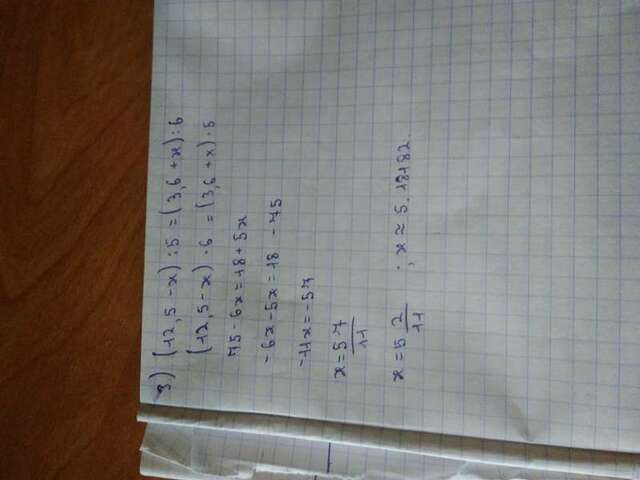 3) (12,5 - x) : 5 = (3,6 + x) : 6
(12,5 - x) · 6 = (3,6 + x) · 5
75 - 6x = 18 + 5x
-6x - 5x = 18 - 75
-11x = -57
x = 57/11
x = 5 2/11 ; x ≈ 5.18182.